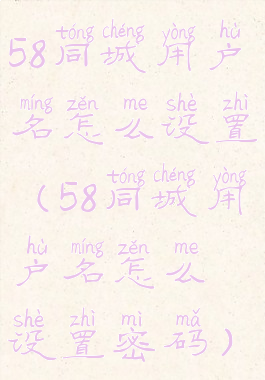 tóng chéng yòng hù
58同城用户
míng zěn me shè zhì
名怎么设置
tóng chéng yòng
（58同城用
hù míng zěn me
户名怎么
shè zhì mì mǎ
设置密码）